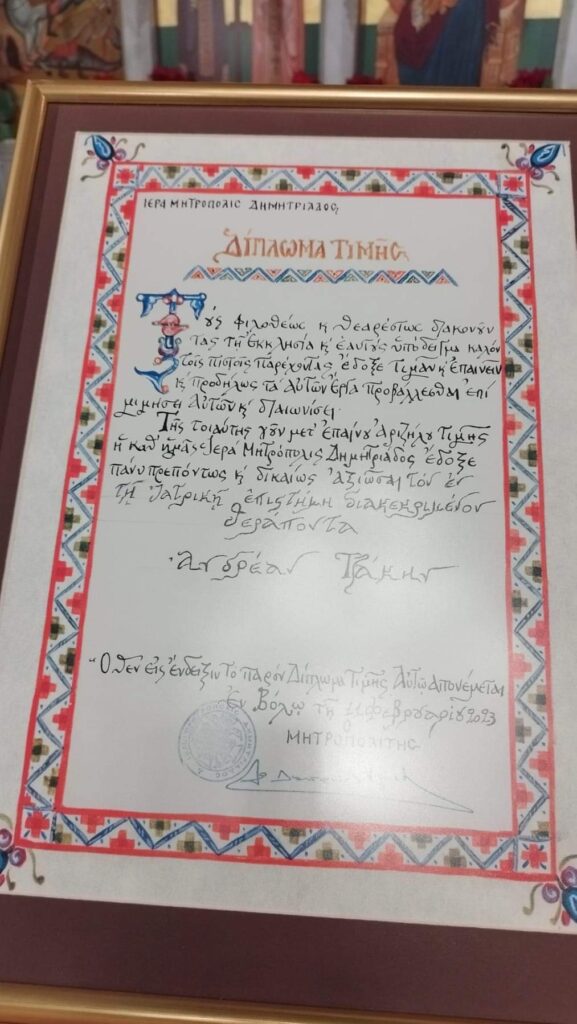 ΙΕΡΑ ΜΗΤΡΟΠΟΛΙΣ ΔΗΜΗΤΡΙΑΔΟΣ
ΔΙΠΛΩΜΑ ΤΙΜΗΣ
Τοὺς φιλοθέως κ θεαρέστως διακονοῦν
τας τῇ Ἐκκλησίᾳ κ ἑαυτοὺς ὑπόδειγμα καλὸν
τοῖς πιστοῖς παρέχοντας, ἔδοξε τιμᾶν κ ἐπαινεῖν
κ προδήλως τὰ αὐτῶν ἔργα προβάλλεσθαι ἐπὶ
μιμήσει αὐτῶν κ διαιωνίσει.
Τῆς τοιαύτης γοῦν μετ' ἐπαίνου ἀριζήλου τιμῆς
ἡ καθ' ἡμᾶς Ἱερὰ Μητρόπολις Δημητριάδος ἔδοξε
πάνυ πρεπόντως κ δικαίως ἀξιῶσαι τὸν ἐν
τῇ Ἰατρικῇ ἐπιστήμῃ διακεκριμένον
θεράποντα
Ἀνδρέαν Τζάκην
Ὅθεν εἰς ἔνδειξιν τὸ παρὸν Δίπλωμα Τιμῆς Αὐτῷ ἀπονέμεται
Ἐν Βόλῳ τῇ 11 Φεβρουαρίου 2023
Ὁ
ΜΗΤΡΟΠΟΛΙΤΗΣ